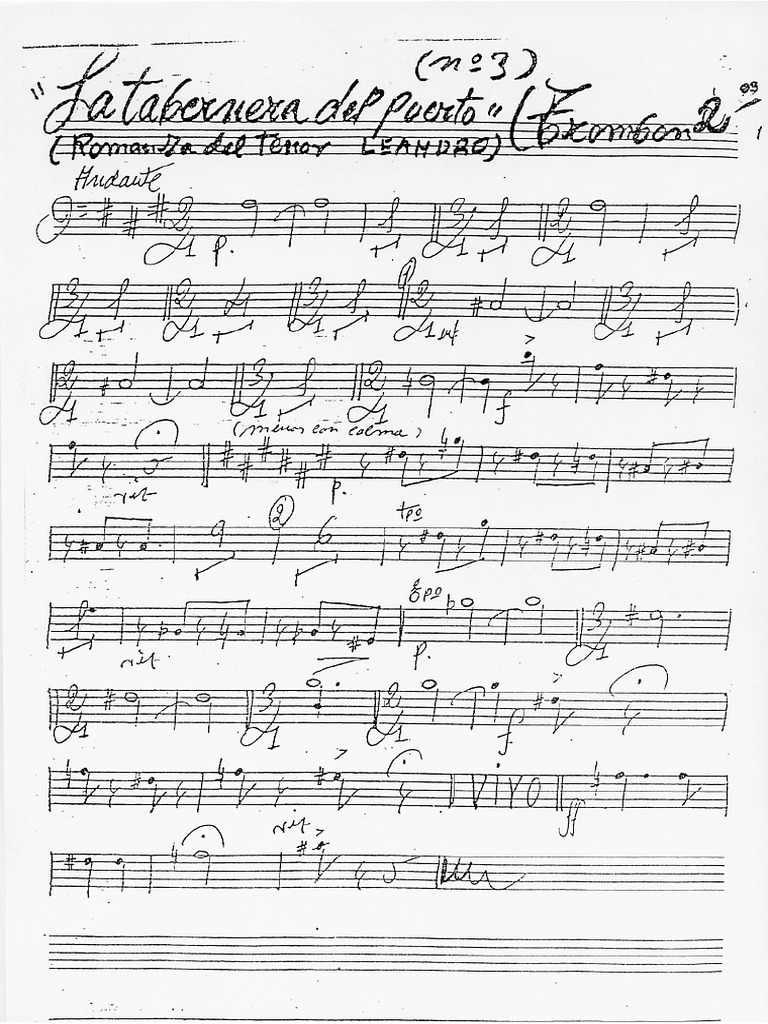 (nº3)
"La tabernera del puerto" (Trombon 2º
(Romanza del Tenor LEANDRO)
Andante
p.
f
(menos con calma)
rit
p.
2
tpo
rit
p.
f
VIVO
ff
rit